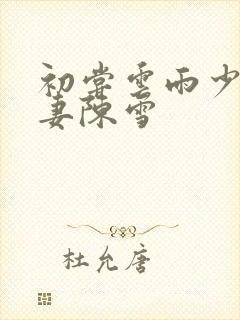 初尝雲雨少
妻陳雪
杜允唐